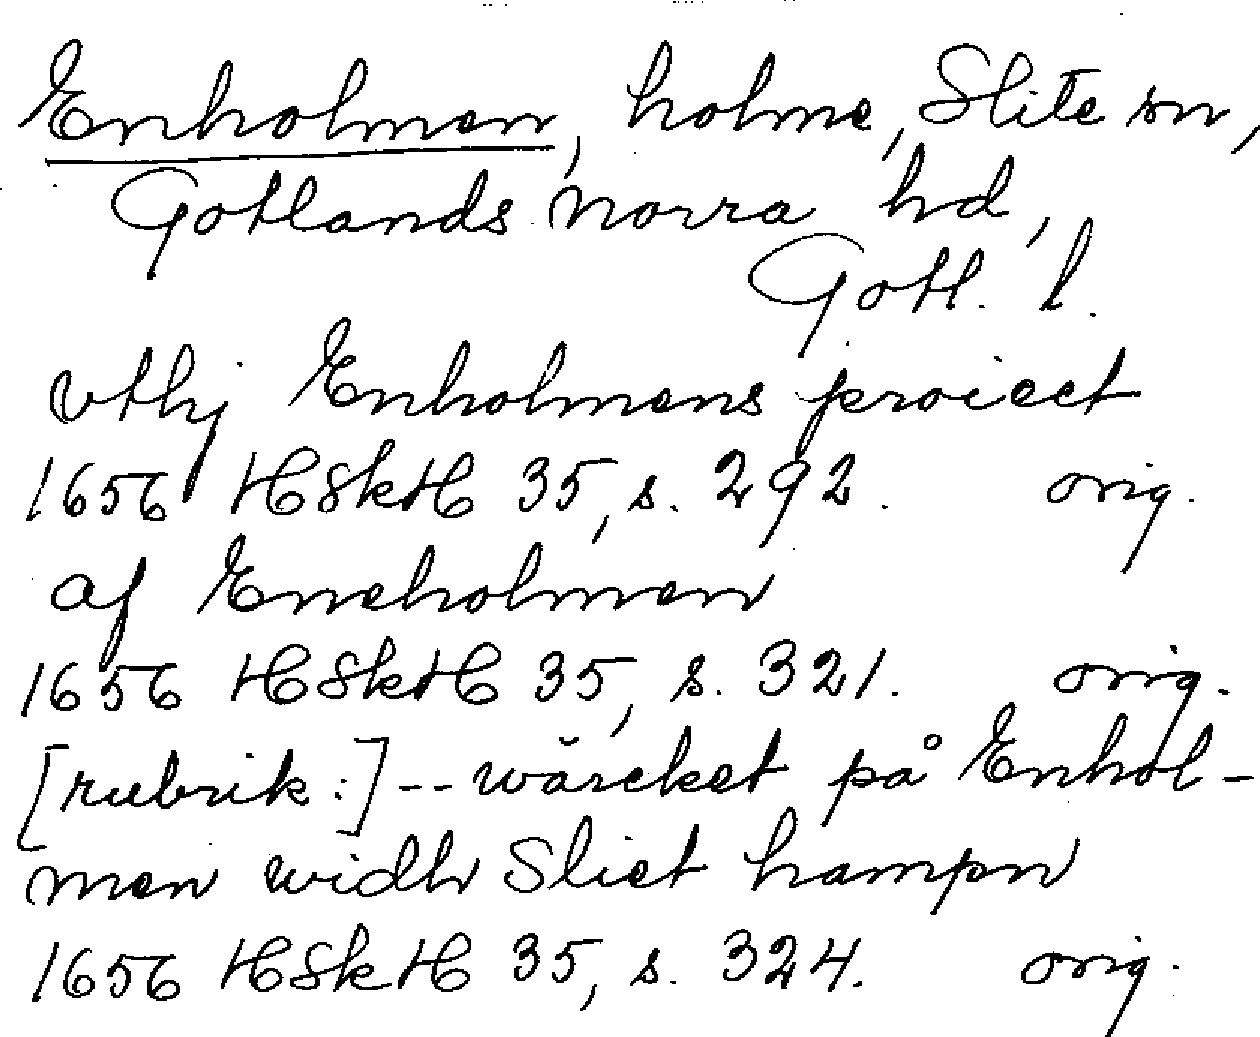 Enholmen, holme, Slite sn,
Gotlands norra hd,
Gotl. l.
vthj Enholmens proiect
1656 HSkH 35, s. 292. orig.
af Eneholmen
1656 HSkH 35, s. 321. orig.
[rubrik:] -- wärcket på Enhol-
men widh Sliet hampn
1656 HSkH 35, s. 324. orig.